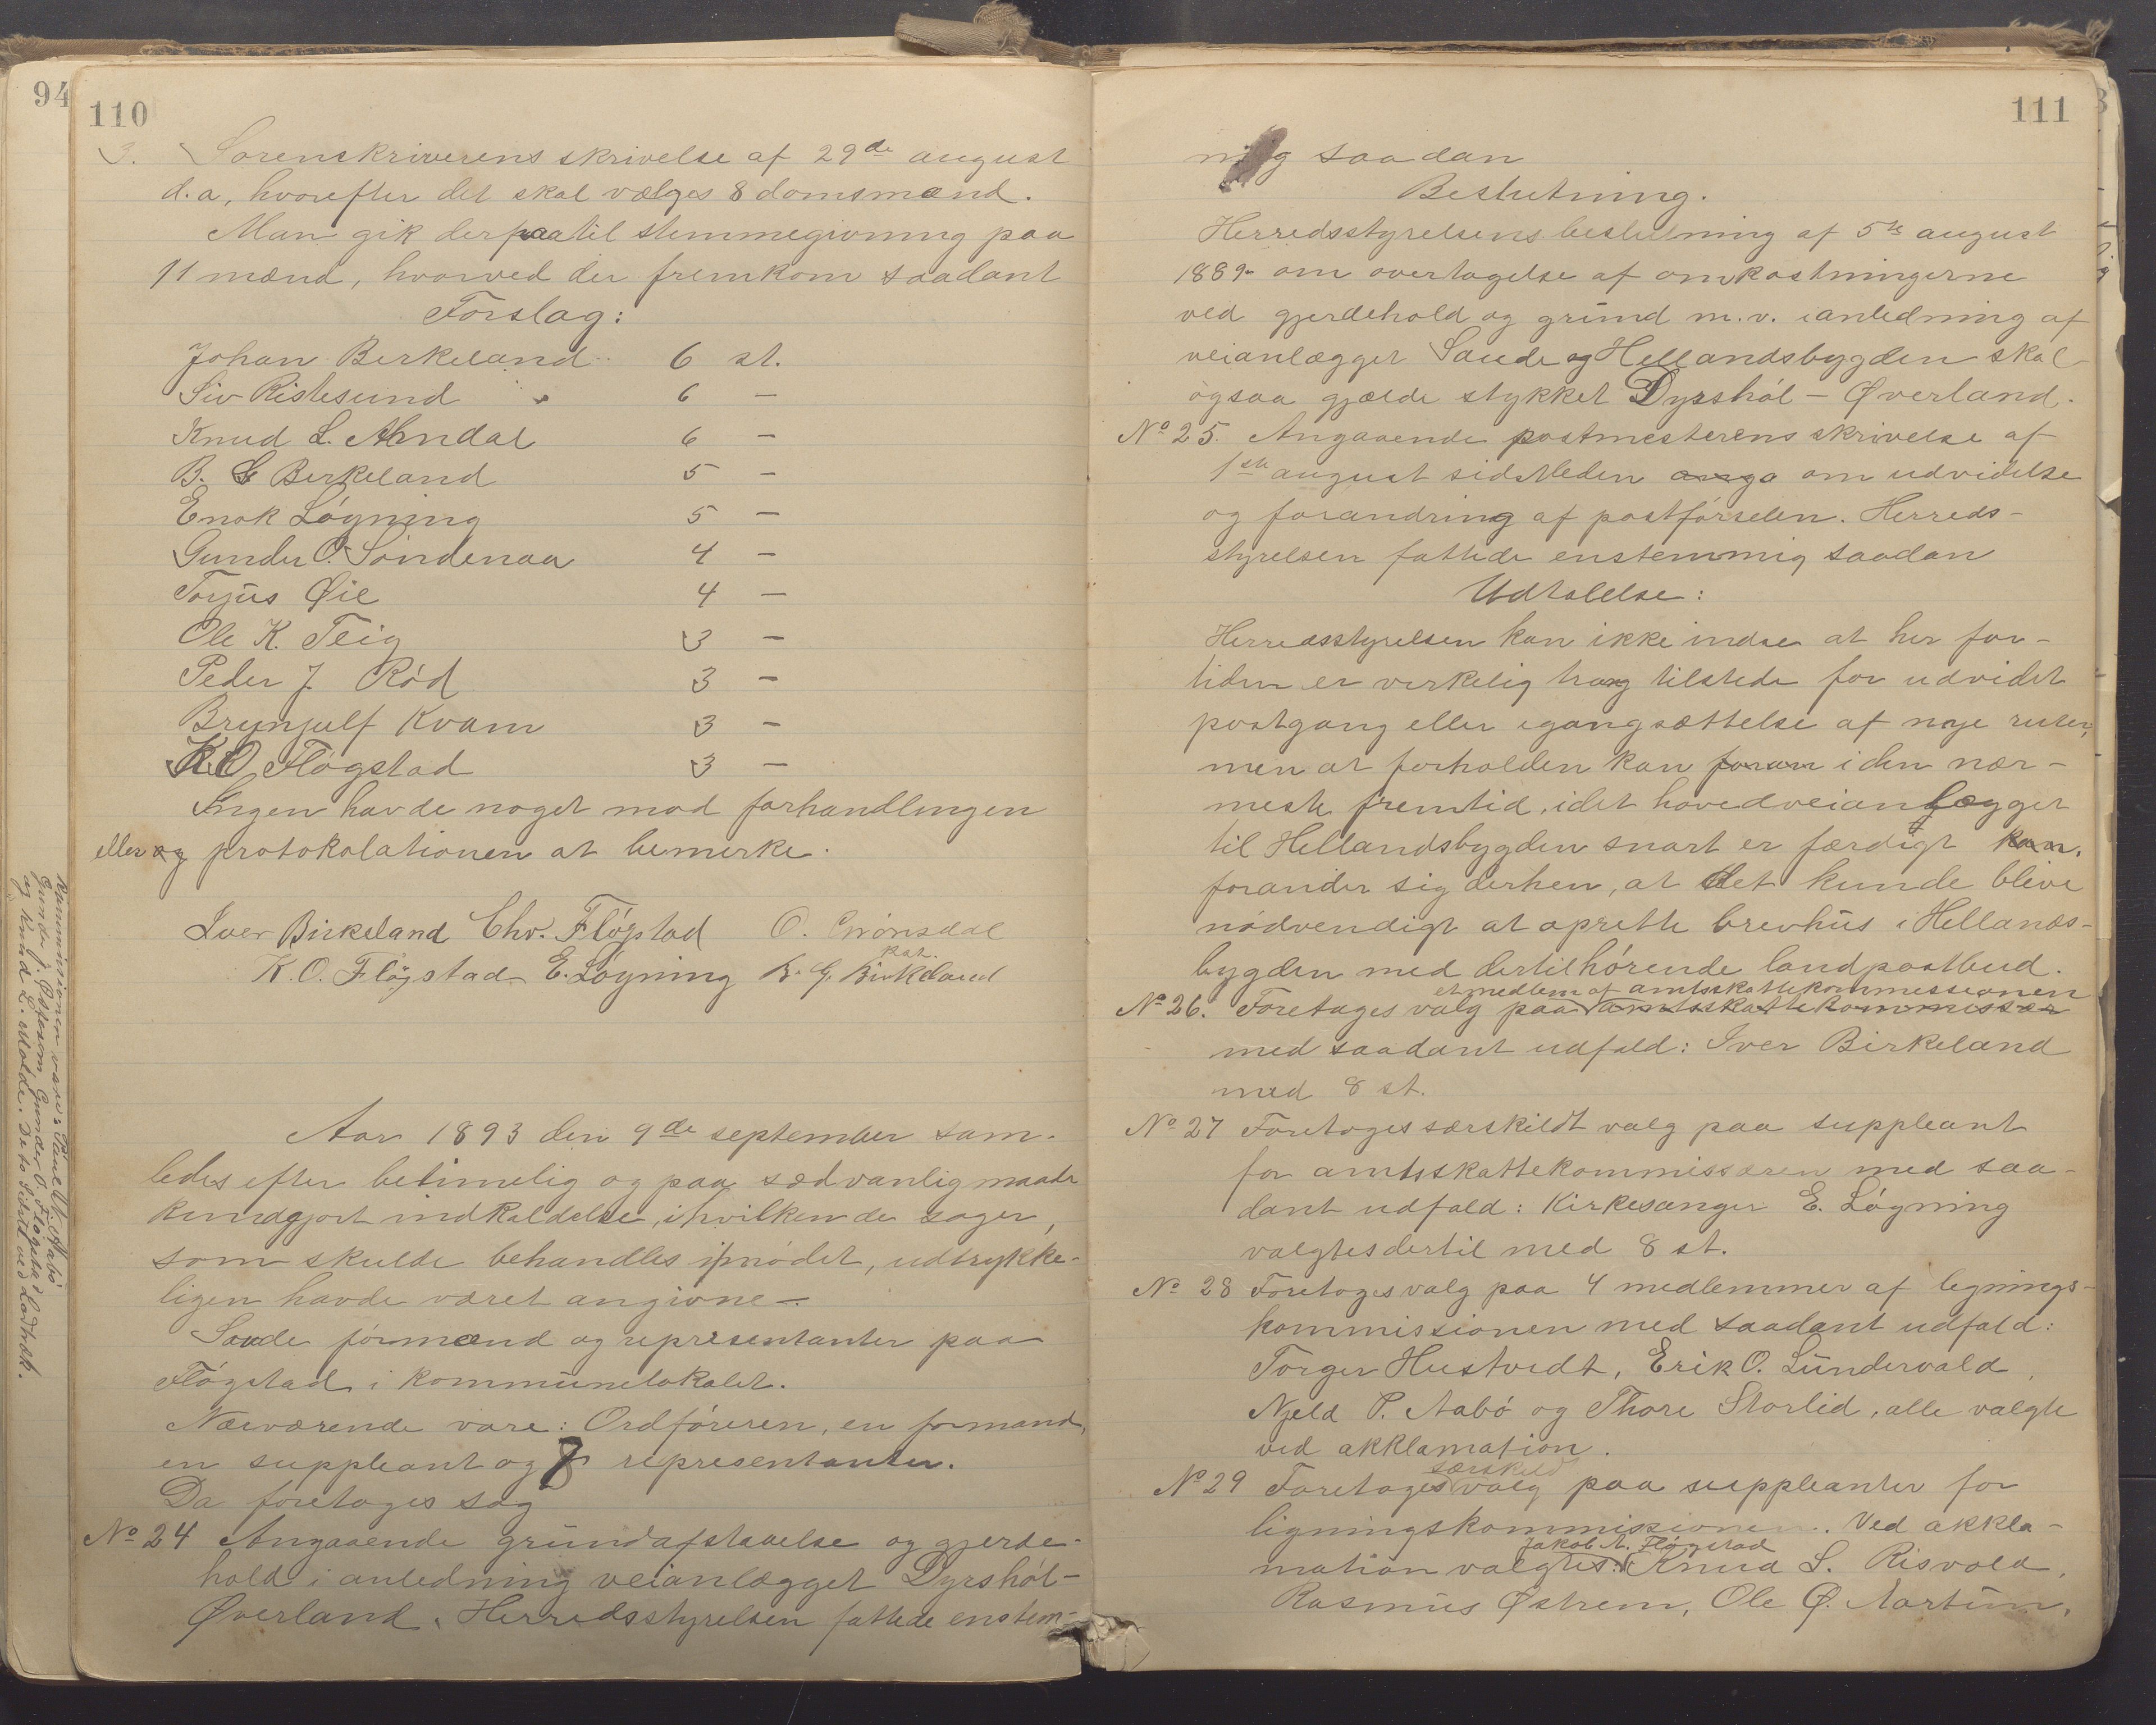 94
110
3. Sorenskriverens skrivelse af 29de august
d.a, hvorefter det skal vælges 8 domsmænd.
Man gik derpaa til stemmegivning paa
11 mænd, hvorved der fremkom saadant
Forslag:
Johan Birkeland 6 st.
Siv Ristesund 6 —
Knud L. 6 —
B. G Birkeland 5 —
Enok Løgning 5 —
Gunder O. Søndenaa 4 —
Torjus Øie 4 —
Ole K. Teig 3 —
Peder J. Rød 3 —
Brynjulf Kvam 3 —
K O Fløgstad 3 —
Ingen havde noget mod forhandlingen
eller og protokolationen at bemerke.
Iver Birkeland Chr. Fløgstad O. Grønsdal
K. O. Fløgstad E. Løgning B. G. Birkeland
Aar 1893 den 9de september sam-
ledes efter betimelig og paa sædvanlig maade
kundgjort indkaldelse, i hvilken de sager,
som skulde behandles i mødet, udtrykke-
ligen havde været angivne —.
Saude formænd og representanter paa
Fløgstad i kommunelokalet.
Nærværende vare: Ordføreren, en formand,
en suppleant og 7 representanter.
Da foretoges sag
No 24 Angaaende grundafstaaelse og gjerde-
hold i anledning veianlægget Dyrshól-
Øverland. Herredsstyrelsen fattede enstem-
og Knud L. Molde. De to sidste ved Lodtræk.
111
nig saadan
Beslutning.
Herredsstyrelsens beslutning af 5te august
1889 om overtagelse af omkostningerne
ved gjerdehold og grund m.v. i anledning af
veianlægget Saude og Hellandsbygden skal
ogsaa gjælde stykket Dyrshól — Øverland.
No 25. Angaaende postmesterens skrivelse af
1ste august sidstleden anga om udvidelse
og forandring af postførselen. Herreds-
styrelsen fattede enstemmig saadan
Udtalelse:
Herredsstyrelsen kan ikke indse at her for-
tiden er verkelig trang tilstede for udvidet
postgang eller igangsættelse af nye ruter,
men at forholden kan foran i den nær-
meste fremtid, idet hovedveianlægget
til Hellandsbygden snart er færdigt kan.
forander sig derhen, at det kunde blive
nødvendigt at oprette brevhus i Hellands-
bygden med dertilhørende landpostbud.
et medlem af amtsskattekommissionen
No 26. Foretages valg paa amtsskattekommissær
med saadant udfald: Iver Birkeland
med 8 st.
No 27 Foretoges særskildt valg paa suppleant
for amtsskattekommissæren med saa-
dant udfald: Kirkesanger E. Løgning
valgtes dertil med 8 st.
No 28 Foretoges valg paa 4 medlemmer af lignings-
kommissionen med saadant udfald:
Torger Hustvedt, Erik O. Lundervald,
Njeld P. Aabø og Thore Storlid, alle valgte
ved akklamation.
særskild
No 29 Foretoges valg paa suppleanter for
ligningskommissionen. Ved akkla-
Jakob A. Fløgstad
mation valgtes: Knud L. Risvold,
Rasmus Østrem, Ole Ø. Aartun,